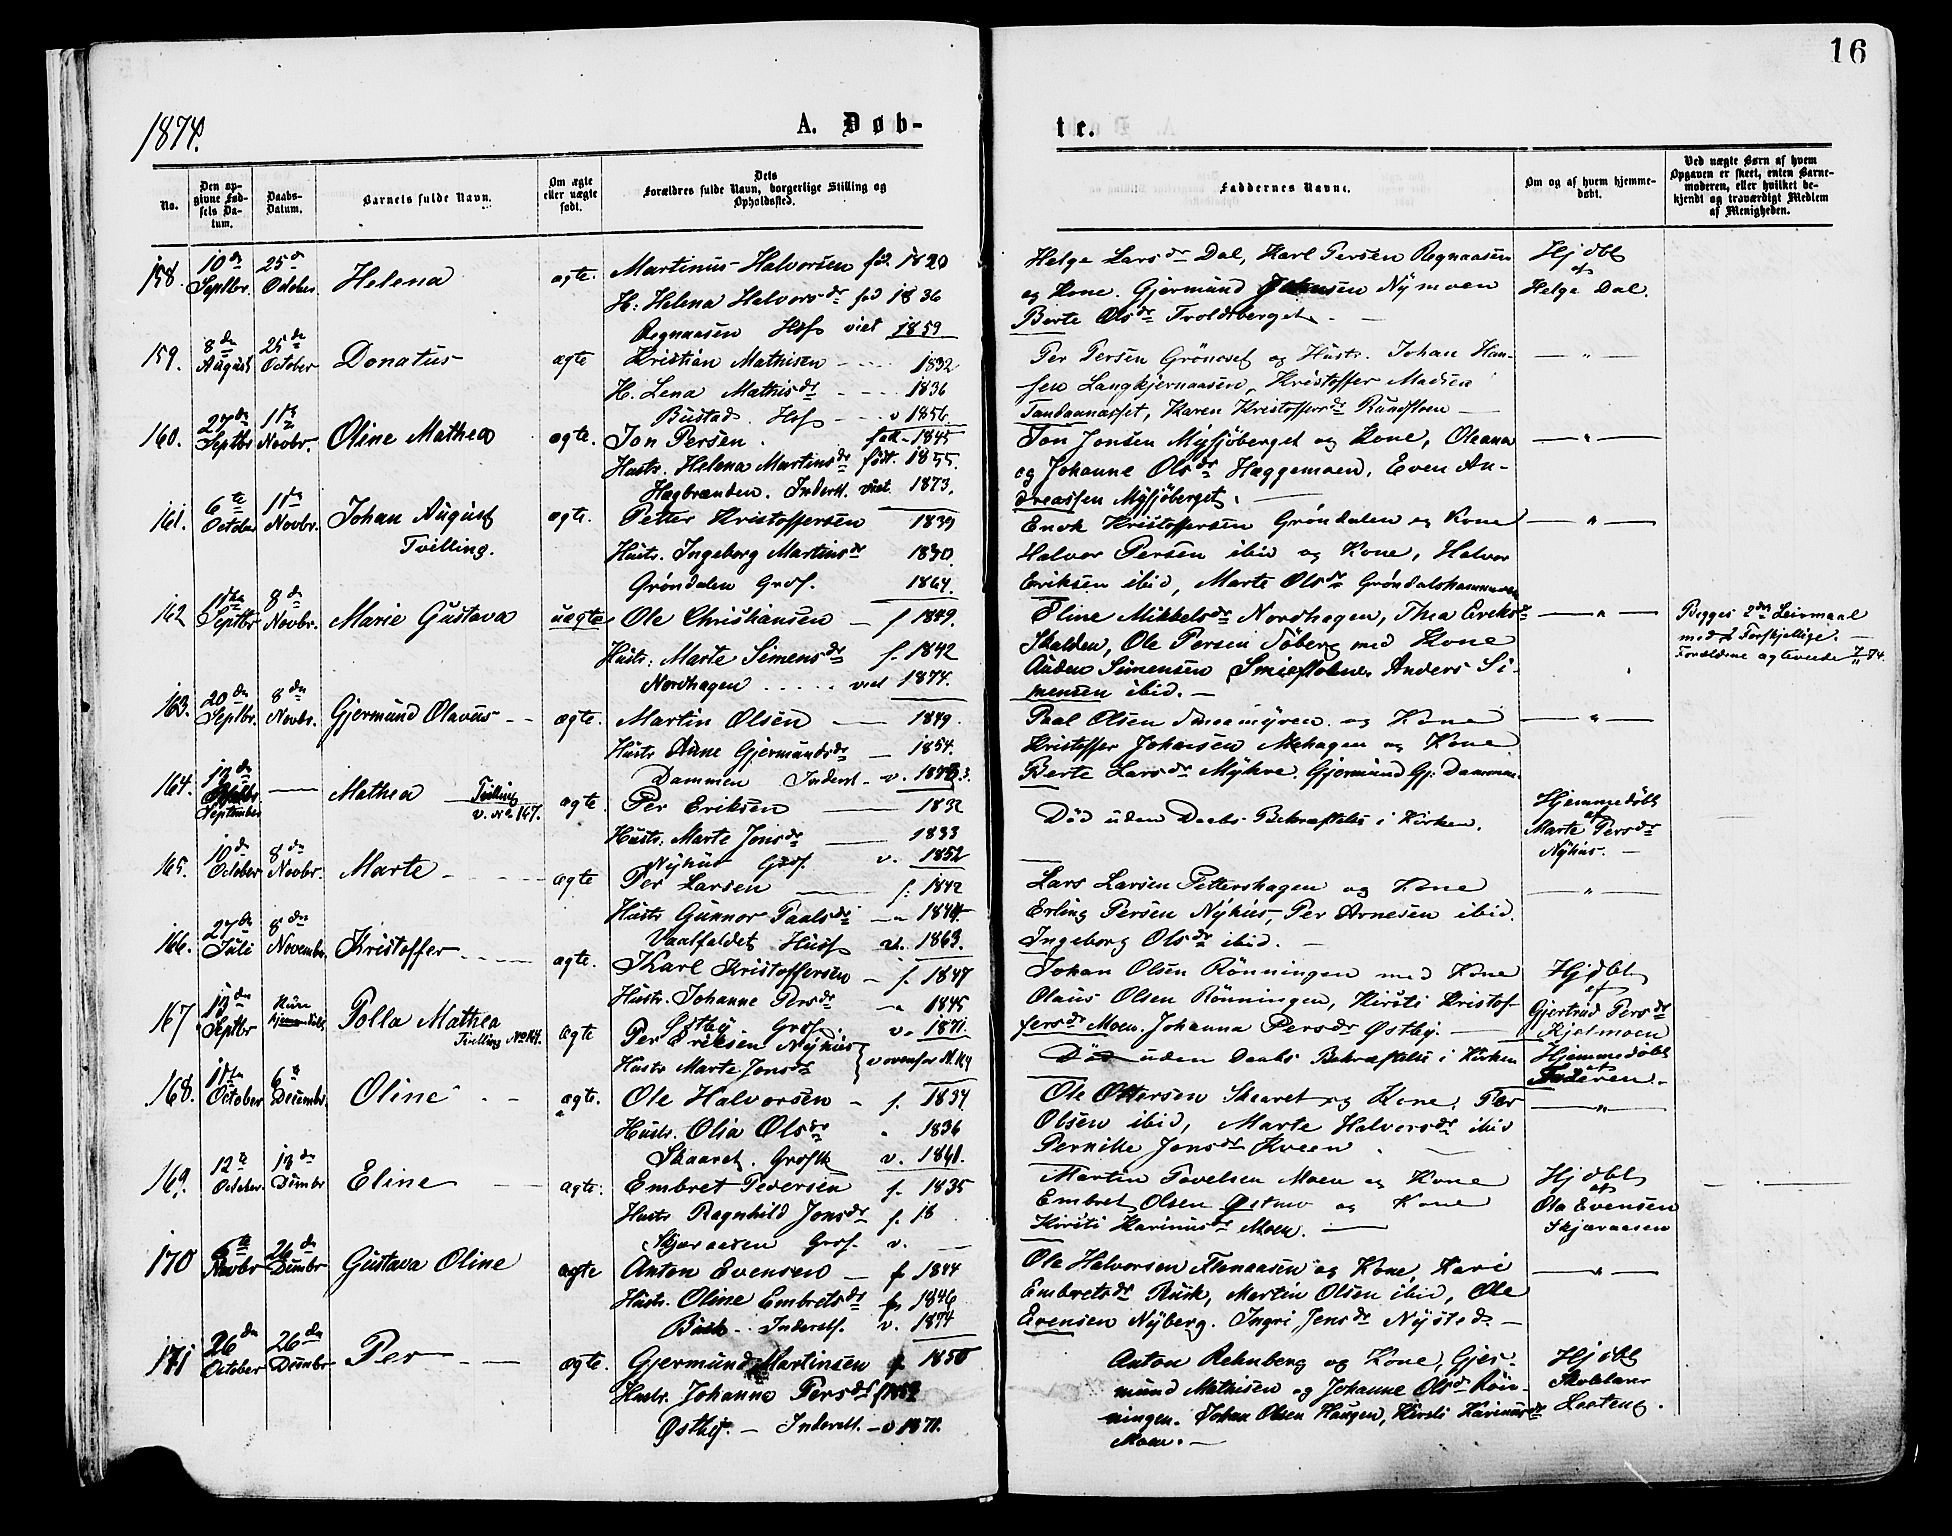 16
1874.
A. Døb-
te.
No.
Den op-
givne Fød-
sels Da-
tum.
Daabs-
Datum.
Barnets fulde Navn.
Om ægte
eller uægte
født.
Dets
Forældres fulde Navn, borgerlige Stilling og
Opholdssted.
Faddernes Navne.
Om og af hvem hjemme-
døbt.
Ved uægte Børn af hvem
Opgaven er skeet, enten Barne-
moderen, eller hvilket be-
kjendt og troværdigt Medlem
af Menigheden.
158. 10de Septbr. 25de October. Helena ægte. Martinus Halvorsen fød 1820
H: Helena Halvorsdr fød 1836
Regnaasen Hsf viet 1859
Helge Larsdr Dal, Karl Persen Regnaasen
og Kone. Gjermund Johansen Nymoen
Berte Olsdr Troldsberget. —
Hjdbt
af
Helge Dal.
159. 8de August 25de October Donatus ægte Kristian Mathisen 1832
H. Lena Mathisdr 1836
Bustad. Hsf v 1856.
Per Persen Grönoset og Hustr. Johan Han-
sen Langkjernaasen, Kristoffer Madsen
Tandaanæsset, Karen Kristoffersdr Rundfloen —
— " —
160. 27de Septbr 1ste Novbr. Oline Mathea ægte. Jon Persen. fød 1845
Hustr. Helena Martinsdr født. 1855.
Hagbrænden. Inderst. viet 1873.
Jon Jonsen Mysjöberget og Kone, Oleana
og Johanne Olsdr Hæggemoen, Even An-
dreassen Mysjöberget.
— " —
161. 6te October 1ste Novbr. Johan August ægte. Petter Kristoffersen 1839
Tvilling.
Hustr. Ingeborg Martinsdr 1830.
Grøndalen Grdf. 1864.
Enok Kristoffersen Grøndalen og Kone
Halvor Persen ibid og Kone, Halvor
Eriksen ibid, Marte Olsdr Grøndalshammeren
— " —
162 Septbr 8de Novbr. Marie Gustava uægte Ole Christiansen — f 1849.
Hustr: Marte Simensdr f. 1842
Nordhagen . . . . . viet 1874.
Eline Mikkelsdr Nordhagen, Thea Eriksdr
Skalden, Ole Persen Söberg med Kone
Auden Simensen Anders Si-
mensen ibid. —
— " —
Begges 2det Leirmaal
med 2 Forskjellige. —
Forældrene ægteviede 7/11 74.
163. 20de Septbr. 8de Novbr. Gjermund Olavus ægte. Martin Olsen — 1849.
Hustr Anne Gjermundsdr — 1854.
Dammen Inderst v. 1873.
Paal Olsen Smaamyren og Kone
Kristoffer Johansen Mehagen og Kone.
Berte Larsdr Myhre. Gjermund Gj: Dammen.
— " —
164. 13de September — Mathea Tvilling ægte. Per Eriksen — 1832
v. No 167.
Hustr. Marte Jonsdr — 1833
Nyhus Grdf. v. 1852
Død uden Daabs Bekræftelse i Kirken.
Hjemmedöbt
af
Marte Persdr
Nyhus. —
165. 10de October 8de Novbr. Marte ægte Per Larsen — f. 1842
Hustr Gunnor Paalsdr — 1844.
Vaalfaldet Husf v. 1863.
Lars Larsen Pettershagen og Kone
Erling Persen Nyhus, Per Arnesen ibid.
Ingeborg Olsdr ibid. —
— " —
166. 27de Juli 8de Novembr. Kristoffer ægte. Karl Kristoffersen — f. 1847
Hustr. Johanne Persdr 1845
Östby Grdf v. 1871.
Johan Olsen Rönningen med Kone
Olaus Olsen Rönningen, Kirsti Kristof-
fersdr Moen. Johanna Persdr Østby. —
Hjdbt
af
Gjertrud Persdr
Kjelmoen
167 13de Septbr Kun hjemmedøbt Polla Mathea ægte Per Eriksen Nyhus
Tvilling No 164.
Hustr Marte Jonsdr v ovenfor N. 164
Død uden Daabs Bekræftelse i Kirken
Hjemmedöbt
af
Faderen.
168. October 6te Decembr. Oline ægte. Ole Halvorsen — f. 1834
Hustr. Olia Olsdr 1836
Skaaret. v. 1861.
Ole Ottersen Skaaret og Kone. Per
Olsen ibid, Marte Halvorsdr ibid
Pernille Jonsdr Kveen.
— " —
169. 12te October 13de Dcmbr Eline — ægte. Embret Pedersen f. 1835
Hustr Ragnhild Jonsdr f. 18
Skjæraasen Grdf. v. —
Martin Tovelsen Moen og Kone
Embret Olsen Østmo og Kone
Kirsti Karinusdr Moen. —
Hjdbt
af
Ola Evensen
Skjæraasen
170 6te Novbr 26de Dcmbr Gustava Oline ægte Anton Evensen — f 1844
Hustr. Oline Embretsdr f. 1846
Inderstf. v. 1874
Ole Halvorsen Flenaasen og Kone, Kari
Embretsdr Rusk, Martin Olsen ibid, Ole
Evensen Nyberg. Ingri Jensdr Nysted. —
— " —
171 26de October 26de Dcmbr Per — ægte. Gjermund Martinsen f 1850
Hustr. Johanna Persdr
Østby. — Inderst. — v 1871.
Anton Rehnberg og Kone, Gjer-
mund Mathisen og Johanne Olsdr Rön-
ningen. Johan Olsen Haugen, Kirsti Karinusdr
Moen. —
Hjdbt
Skolelærer